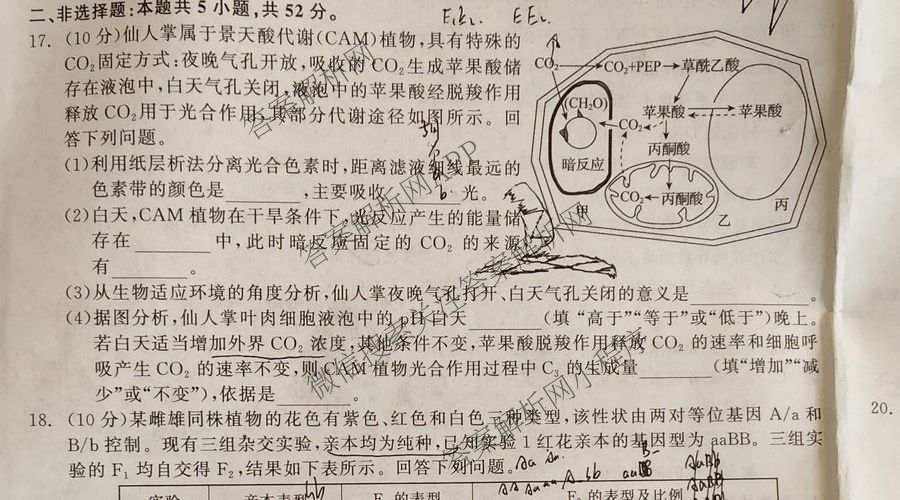 二、非选择题:本题共5小题,共52分。
17. (10分)仙人掌属于景天酸代谢(CAM)植物,具有特殊的
CO₂固定方式:夜晚气孔开放,吸收的CO₂生成苹果酸储
存在液泡中,白天气孔关闭,液泡中的苹果酸经脱羧作用
释放CO₂用于光合作用,其部分代谢途径如图所示。回
答下列问题。
(1)利用纸层析法分离光合色素时,距离滤液细线最远的
色素带的颜色是________,主要吸收________光。
(2)白天,CAM植物在干旱条件下,光反应产生的能量储
存在________中,此时暗反应固定的CO₂的来源
有________。
CO₂
CO₂+PEP
草酰乙酸
(CH₂O)
CO₂
苹果酸
苹果酸
暗反应
丙酮酸
CO₂
丙酮酸
甲
乙
丙
(3)从生物适应环境的角度分析,仙人掌夜晚气孔打开、白天气孔关闭的意义是________。
(4)据图分析,仙人掌叶肉细胞液泡中的pH白天________(填“高于”“等于”或“低于”)晚上。
若白天适当增加外界CO₂浓度,其他条件不变,苹果酸脱羧作用释放CO₂的速率和细胞呼
吸产生CO₂的速率不变,则CAM植物光合作用过程中C₃的生成量________(填“增加”“减
少”或“不变”),依据是________。
18. (10分)某雌雄同株植物的花色有紫色、红色和白色三种类型,该性状由两对等位基因A/a和
B/b控制。现有三组杂交实验,亲本均为纯种,已知实验1红花亲本的基因型为aaBB。三组实
验的F₁均自交得F₂,结果如下表所示。回答下列问题。
实验
亲本表型
F₁的表型
F₂的表型及比例
20.
答案解析网APP
微信搜索关注答案解析网
答案解析网小程序